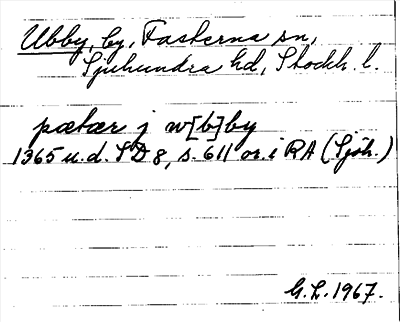 Ubby, by, Fasterna sn,
Sjuhundra hd, Stockh. l.
pætær j w[b]by
1365 u.d. SD 8, s. 611 or. i RA (Sjöh.)
G.L. 1967.